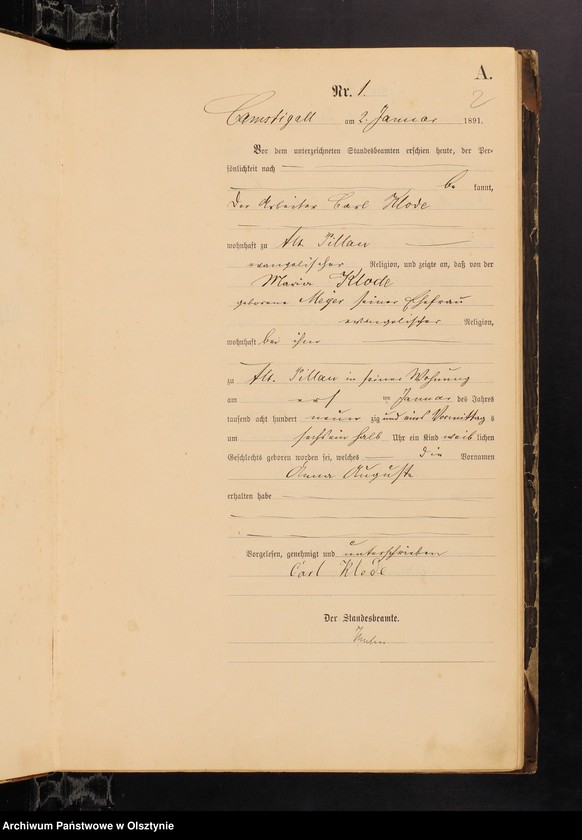 A.
Nr. 1.
2
Camstigall am 2. Januar 1891.
Vor dem unterzeichneten Standesbeamten erschien heute, der Per-
sönlichkeit nach
be kannt,
der Arbeiter Carl Klode
wohnhaft zu Alt. Pillau
evangelischer Religion, und zeigte an, daß von der
Maria Klode
geborene Meyer seiner Ehefrau
evangelischer Religion,
wohnhaft bei ihm
zu Alt. Pillau in seiner Wohnung
am ersten Januar des Jahres
tausend acht hundert neun zig und eins Vormittag s
um sechs ein halb Uhr ein Kind weib lichen
Geschlechts geboren worden sei, welches die Vornamen
Anna Auguste
erhalten habe
Vorgelesen, genehmigt und unterschrieben
Carl Klode
Der Standesbeamte.
Archiwum Państwowe w Olsztynie